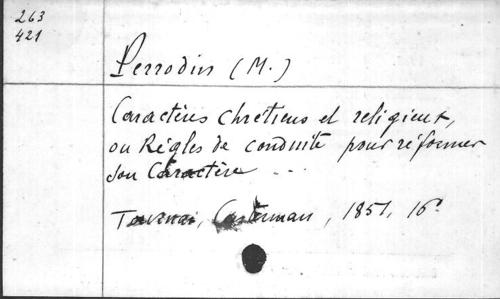 263
421
Perrodin (M.)
Caractères chrétiens et religieux,
ou Règles de conduite pour réformer
son Caractère ...
Tournai, Casterman, 1851, 16°